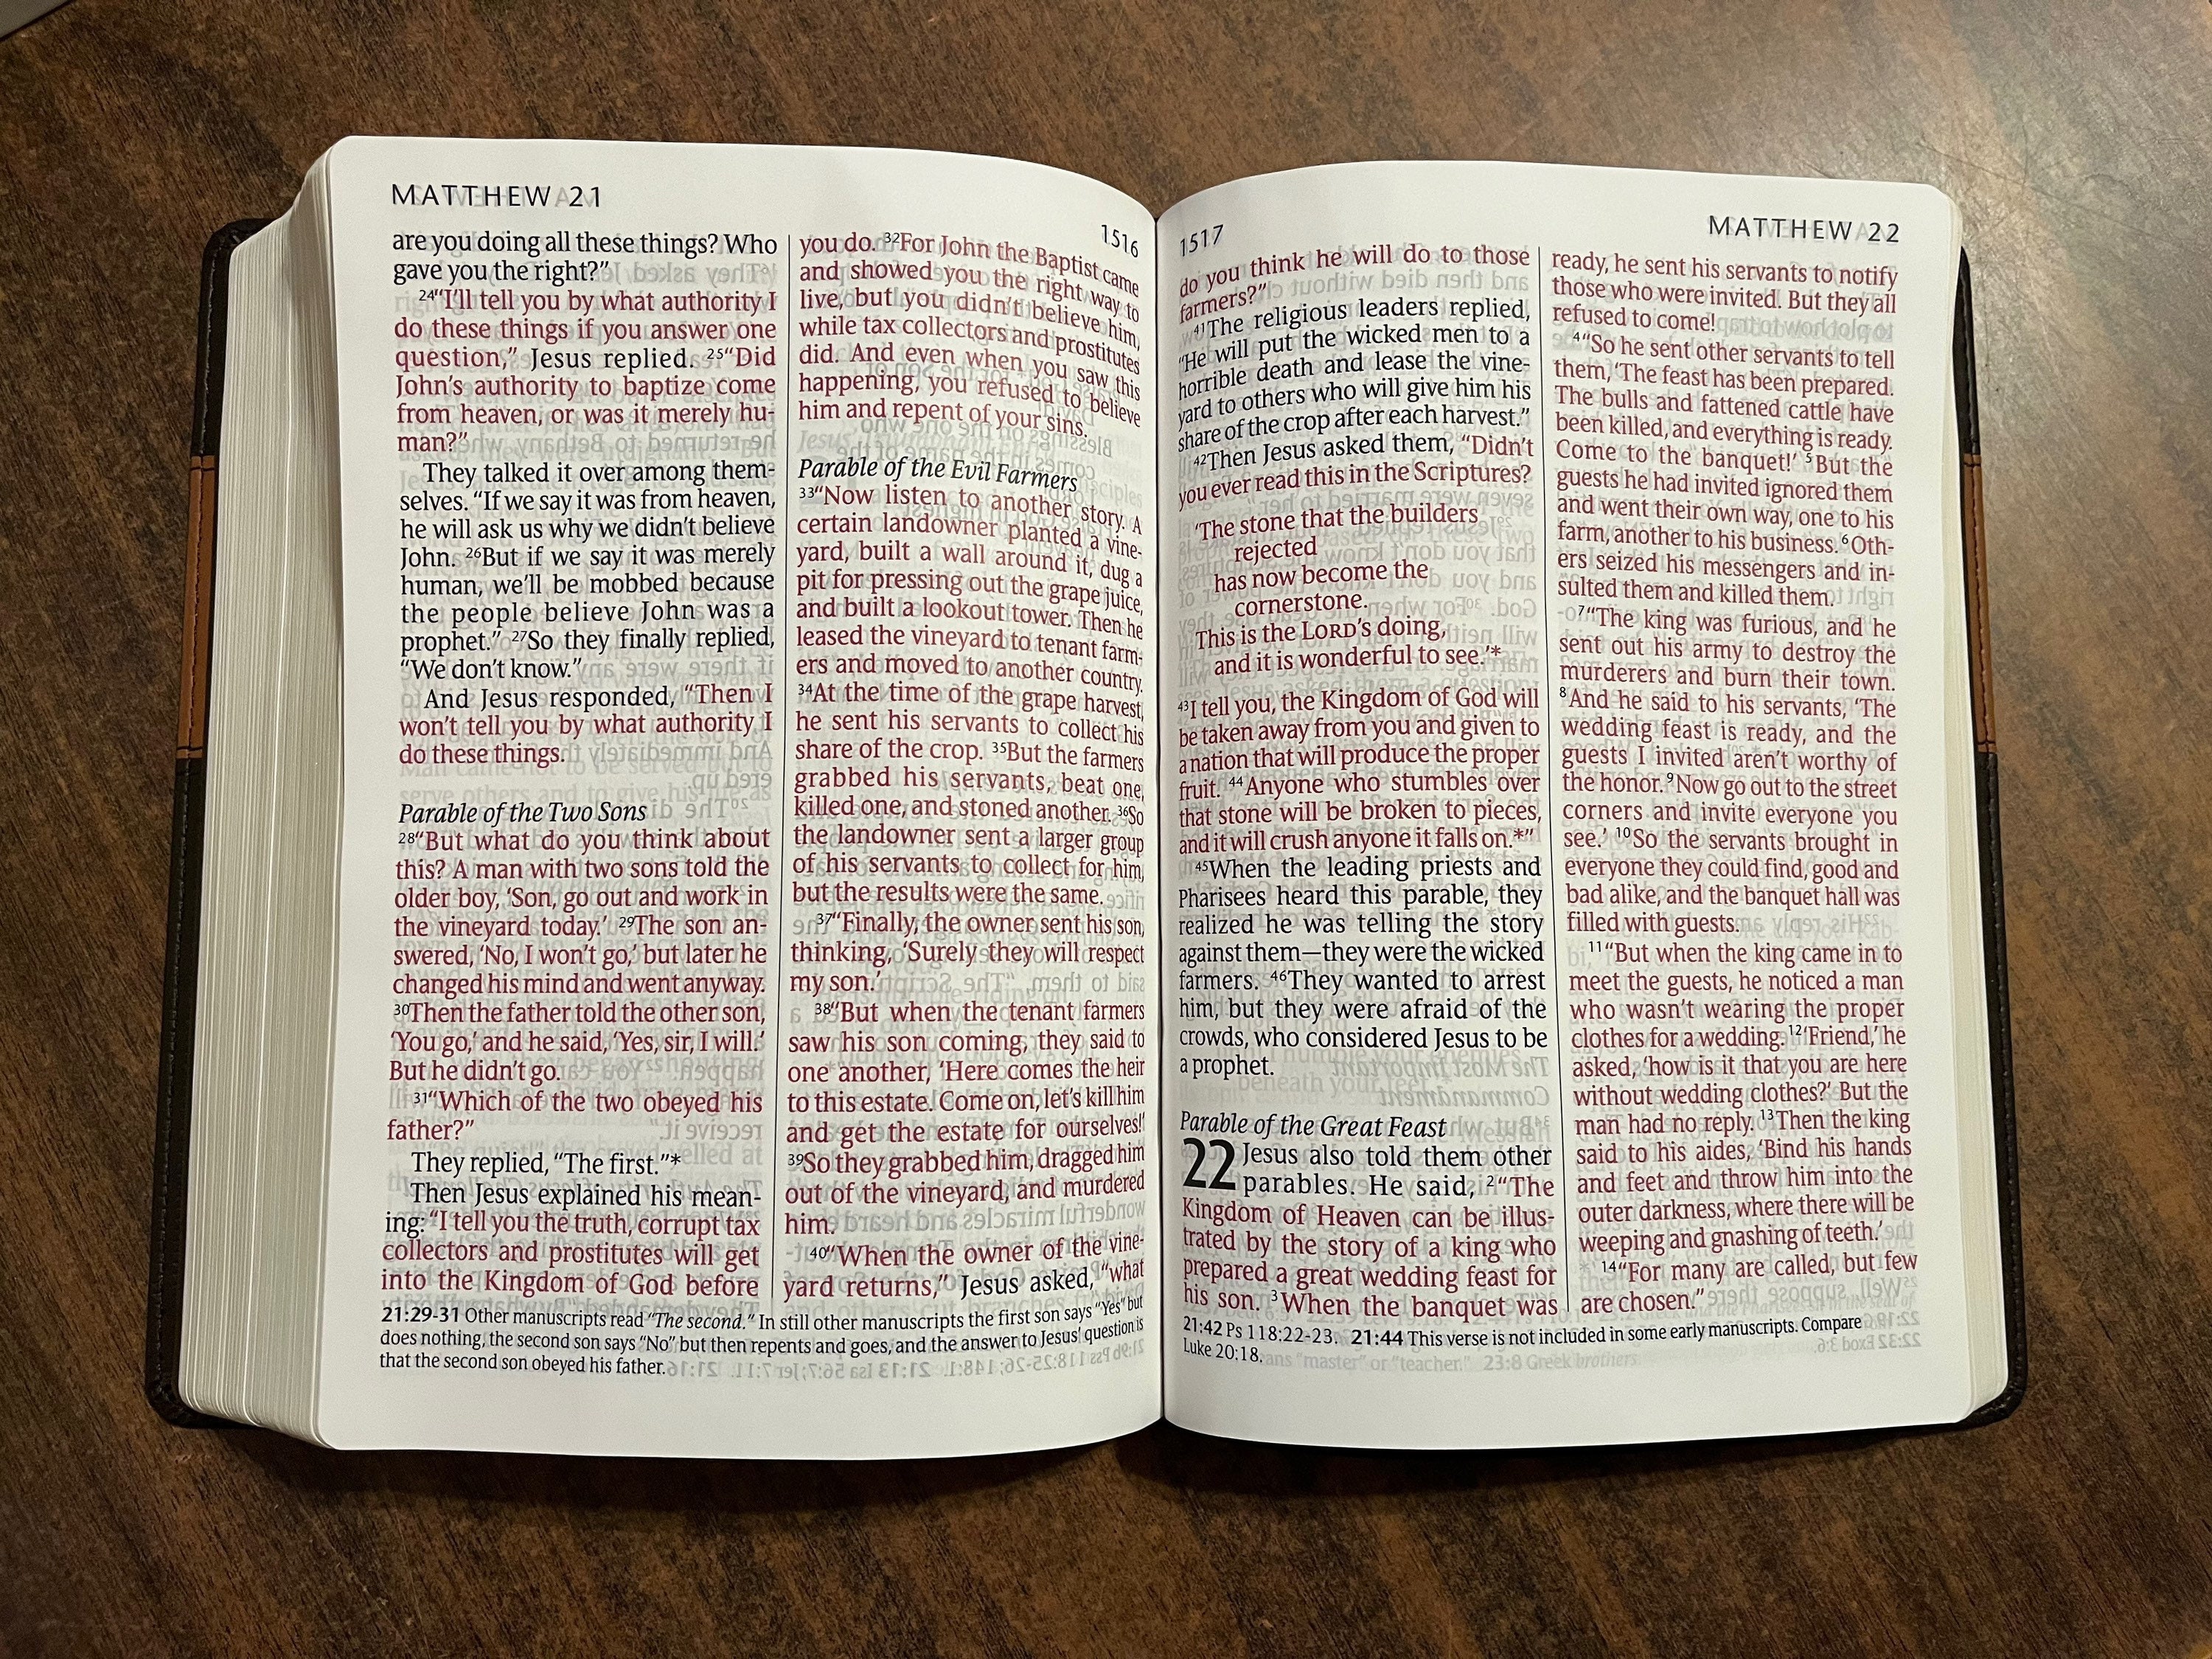 MATTHEW 21
1516
are you doing all these things? Who
gave you the right?”
24“I’ll tell you by what authority I
do these things if you answer one
question,” Jesus replied. 25“Did
John’s authority to baptize come
from heaven, or was it merely hu-
man?”
They talked it over among them-
selves. “If we say it was from heaven,
he will ask us why we didn’t believe
John. 26But if we say it was merely
human, we’ll be mobbed because
the people believe John was a
prophet.” 27So they finally replied,
“We don’t know.”
And Jesus responded, “Then I
won’t tell you by what authority I
do these things.
Parable of the Two Sons
28“But what do you think about
this? A man with two sons told the
older boy, ‘Son, go out and work in
the vineyard today.’ 29The son an-
swered, ‘No, I won’t go,’ but later he
changed his mind and went anyway.
30Then the father told the other son,
‘You go,’ and he said, ‘Yes, sir, I will.’
But he didn’t go.
31“Which of the two obeyed his
father?”
They replied, “The first.”*
Then Jesus explained his mean-
ing: “I tell you the truth, corrupt tax
collectors and prostitutes will get
into the Kingdom of God before
you do. 32For John the Baptist came
and showed you the right way to
live, but you didn’t believe him,
while tax collectors and prostitutes
did. And even when you saw this
happening, you refused to believe
him and repent of your sins.
Parable of the Evil Farmers
33“Now listen to another story. A
certain landowner planted a vine-
yard, built a wall around it, dug a
pit for pressing out the grape juice,
and built a lookout tower. Then he
leased the vineyard to tenant farm-
ers and moved to another country.
34At the time of the grape harvest,
he sent his servants to collect his
share of the crop. 35But the farmers
grabbed his servants, beat one,
killed one, and stoned another. 36So
the landowner sent a larger group
of his servants to collect for him,
but the results were the same.
37“Finally, the owner sent his son,
thinking, ‘Surely they will respect
my son.’
38“But when the tenant farmers
saw his son coming, they said to
one another, ‘Here comes the heir
to this estate. Come on, let’s kill him
and get the estate for ourselves!’
39So they grabbed him, dragged him
out of the vineyard, and murdered
him.
40“When the owner of the vine-
yard returns,” Jesus asked, “what
21:29-31 Other manuscripts read “The second.” In still other manuscripts the first son says “Yes” but
does nothing, the second son says “No” but then repents and goes, and the answer to Jesus’ question is
that the second son obeyed his father.
1517
MATTHEW 22
do you think he will do to those
farmers?”
41The religious leaders replied,
“He will put the wicked men to a
horrible death and lease the vine-
yard to others who will give him his
share of the crop after each harvest.”
42Then Jesus asked them, “Didn’t
you ever read this in the Scriptures?
‘The stone that the builders
rejected
has now become the
cornerstone.
This is the LORD’s doing,
and it is wonderful to see.’*
43I tell you, the Kingdom of God will
be taken away from you and given to
a nation that will produce the proper
fruit. 44Anyone who stumbles over
that stone will be broken to pieces,
and it will crush anyone it falls on.*”
45When the leading priests and
Pharisees heard this parable, they
realized he was telling the story
against them—they were the wicked
farmers. 46They wanted to arrest
him, but they were afraid of the
crowds, who considered Jesus to be
a prophet.
Parable of the Great Feast
22 Jesus also told them other
parables. He said, 2“The
Kingdom of Heaven can be illus-
trated by the story of a king who
prepared a great wedding feast for
his son. 3When the banquet was
ready, he sent his servants to notify
those who were invited. But they all
refused to come!
4“So he sent other servants to tell
them, ‘The feast has been prepared.
The bulls and fattened cattle have
been killed, and everything is ready.
Come to the banquet!’ 5But the
guests he had invited ignored them
and went their own way, one to his
farm, another to his business. 6Oth-
ers seized his messengers and in-
sulted them and killed them.
7“The king was furious, and he
sent out his army to destroy the
murderers and burn their town.
8And he said to his servants, ‘The
wedding feast is ready, and the
guests I invited aren’t worthy of
the honor. 9Now go out to the street
corners and invite everyone you
see.’ 10So the servants brought in
everyone they could find, good and
bad alike, and the banquet hall was
filled with guests.
11“But when the king came in to
meet the guests, he noticed a man
who wasn’t wearing the proper
clothes for a wedding. 12‘Friend,’ he
asked, ‘how is it that you are here
without wedding clothes?’ But the
man had no reply. 13Then the king
said to his aides, ‘Bind his hands
and feet and throw him into the
outer darkness, where there will be
weeping and gnashing of teeth.’
14“For many are called, but few
are chosen.”
21:42 Ps 118:22-23. 21:44 This verse is not included in some early manuscripts. Compare
Luke 20:18.